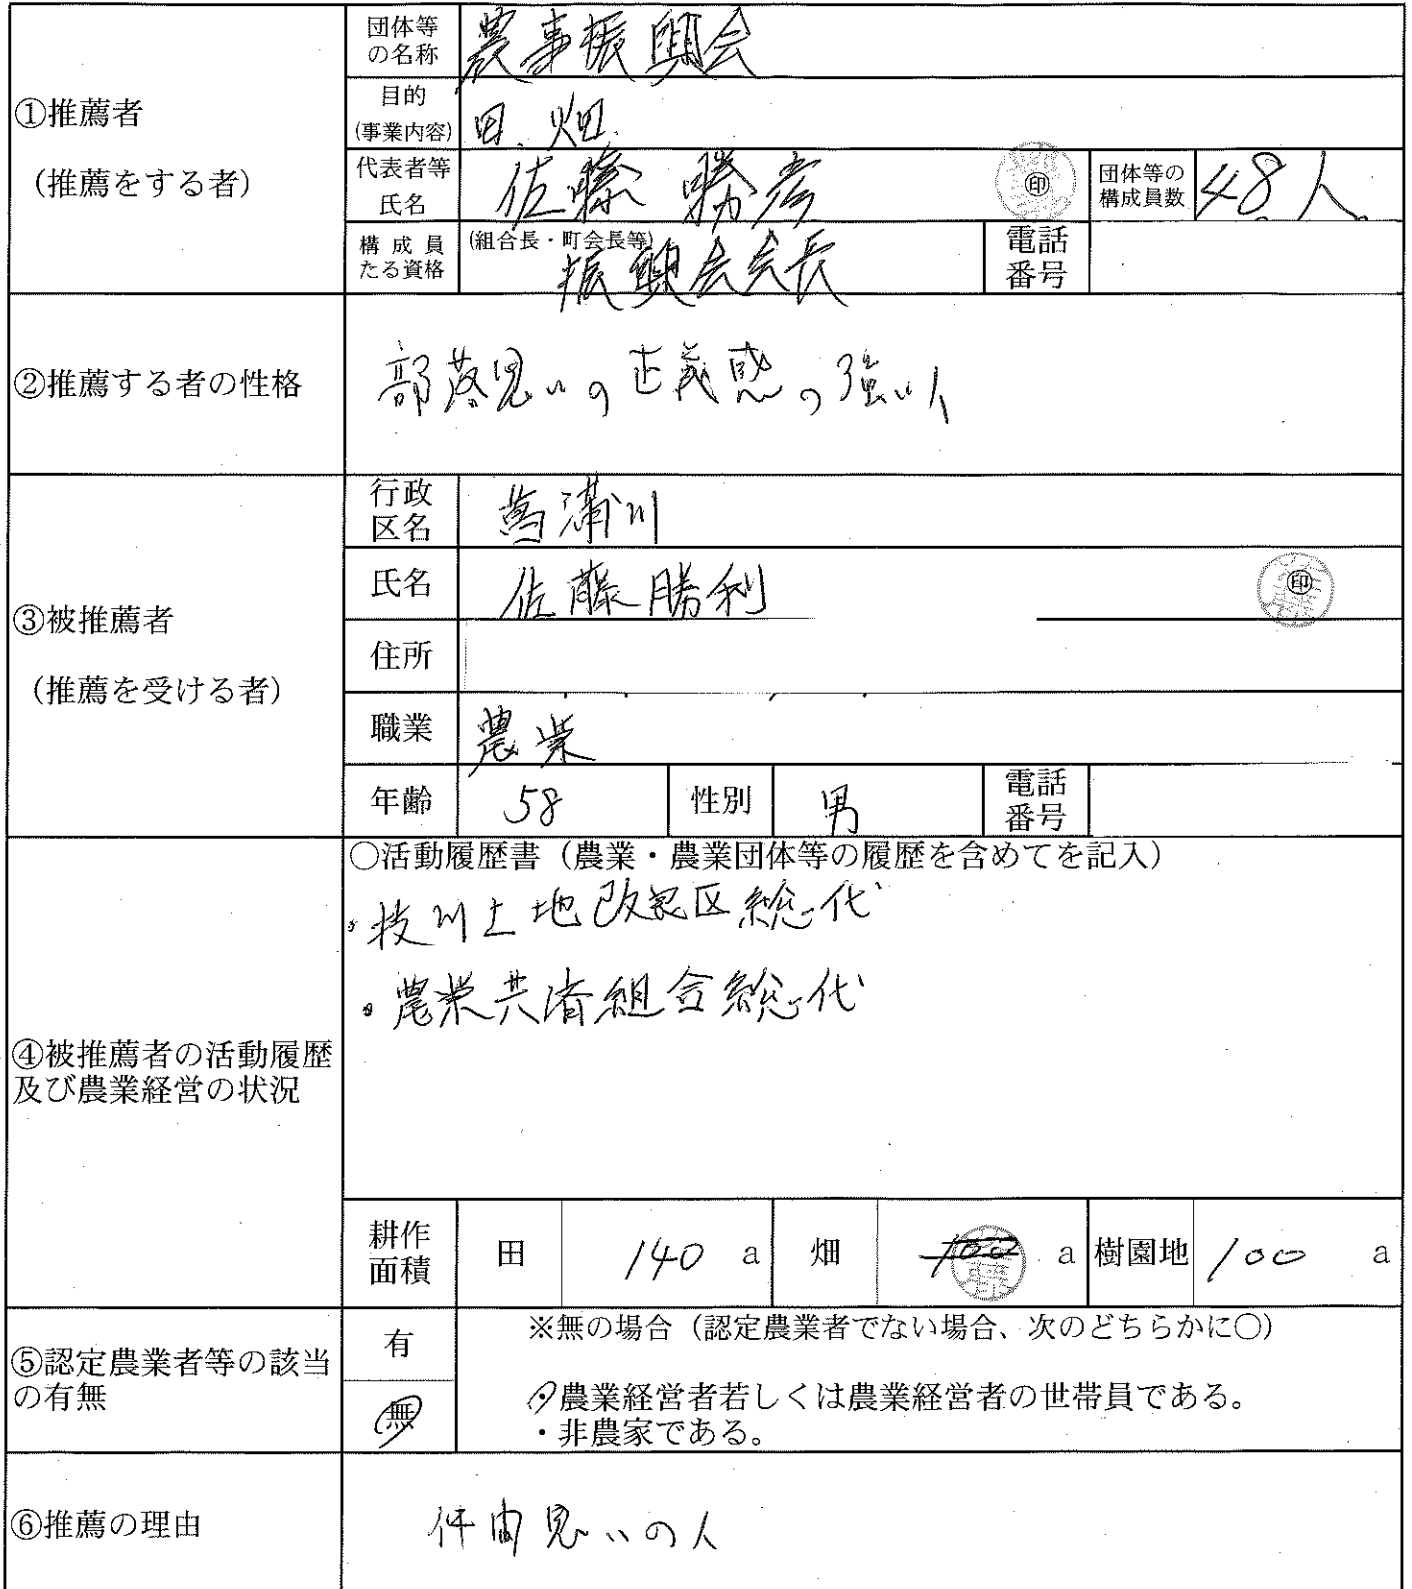 ①推薦者
（推薦をする者）
団体等の名称 農事振興会
目的(事業内容) 田、畑
代表者等氏名 佐藤勝彦 ㊞ 団体等の構成員数 48人
構成員たる資格 (組合長・町会長等) 振興会会長 電話番号
②推薦する者の性格 部落思いの正義感の強い人
③被推薦者
（推薦を受ける者）
行政区名 溝川
氏名 佐藤勝利 ㊞
住所
職業 農業
年齢 58 性別 男 電話番号
④被推薦者の活動履歴及び農業経営の状況
○活動履歴書（農業・農業団体等の履歴を含めてを記入）
・枝川土地改良区総代
・農業共済組合総代
耕作面積 田 140 a 畑 100 a 樹園地 100 a
⑤認定農業者等の該当の有無
有
無
※無の場合（認定農業者でない場合、次のどちらかに○）
・農業経営者若しくは農業経営者の世帯員である。
・非農家である。
⑥推薦の理由 仲間思いの人